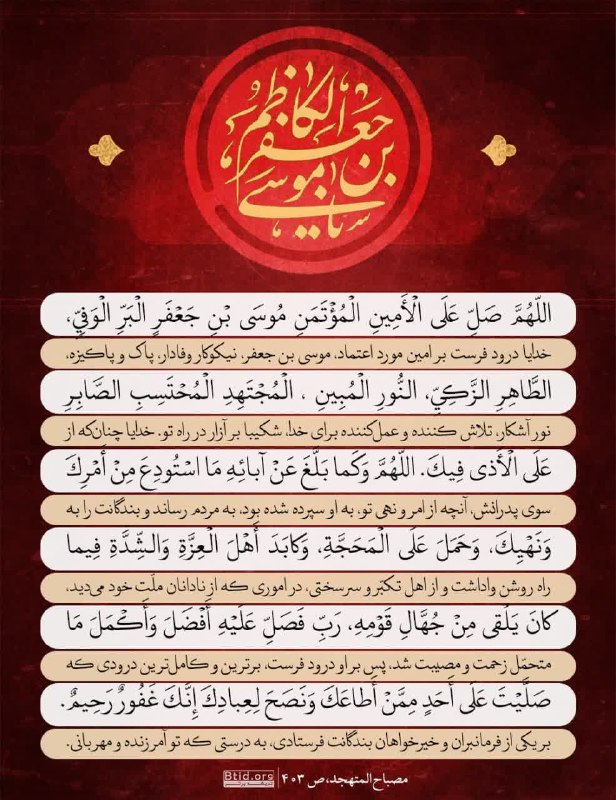 یا موسی بن جعفر الکاظم
اللّهُمَّ صَلِّ عَلَی الْأَمِينِ الْمُؤْتَمَنِ مُوسَی بْنِ جَعْفَرٍ الْبَرِّ الْوَفِيِّ،
خدایا درود فرست بر امین مورد اعتماد، موسی بن جعفر، نیکوکار وفادار، پاک و پاکیزه،
الطَّاهِرِ الزَّكِيِّ، النُّورِ الْمُبِينِ ، الْمُجْتَهِدِ الْمُحْتَسِبِ الصَّابِرِ
نور آشکار، تلاش کننده و عمل‌کننده برای خدا، شکیبا بر آزار در راه تو. خدایا چنان‌که از
عَلَی الْأَذی فِيكَ. اللّهُمَّ وَكَما بَلَّغَ عَنْ آبائِهِ مَا اسْتُودِعَ مِنْ أَمْرِكَ
سوی پدرانش، آنچه از امر و نهی تو، به او سپرده شده بود، به مردم رساند و بندگانت را به
وَنَهْيِكَ، وَحَمَلَ عَلَی الْمَحَجَّةِ، وَكابَدَ أَهْلَ الْعِزَّةِ وَالشِّدَّةِ فِيما
راه روشن واداشت و از اهل تکبّر و سرسختی، در اموری که از نادانان ملّت خود می‌دید،
كانَ يَلْقی مِنْ جُهَّالِ قَوْمِهِ، رَبِّ فَصَلِّ عَلَيْهِ أَفْضَلَ وَأَكْمَلَ مَا
متحمّل زحمت و مصیبت شد، پس بر او درود فرست، برترین و کامل‌ترین درودی که
صَلَّيْتَ عَلَی أَحَدٍ مِمَّنْ أَطاعَكَ وَنَصَحَ لِعِبادِكَ إِنَّكَ غَفُورٌ رَحِيمٌ.
بر یکی از فرمانبران و خیرخواهان بندگانت فرستادی، به درستی که تو آمرزنده و مهربانی.
مصباح المتهجد، ص ۴۰۳ | Btid.org